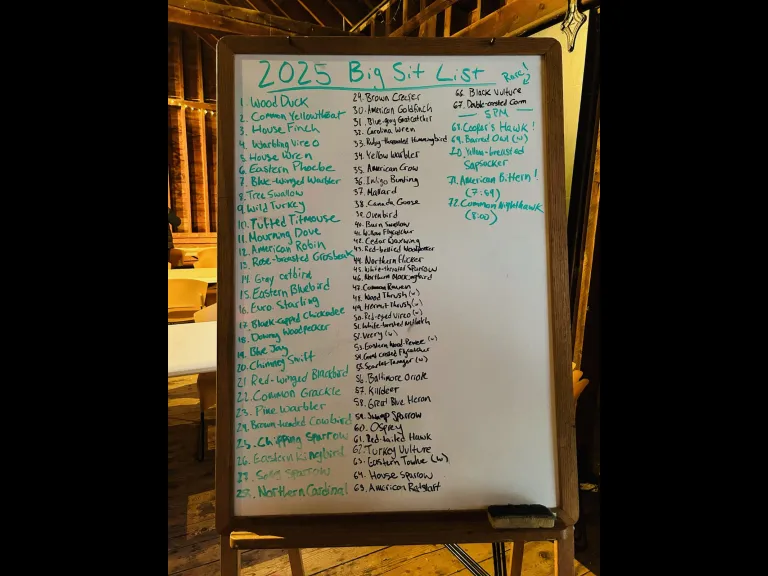 2025 Big Sit List
Rare!
1. Wood Duck
2. Common Yellowthroat
3. House Finch
4. Warbling Vireo
5. House Wren
6. Eastern Phoebe
7. Blue-winged Warbler
8. Tree Swallow
9. Wild Turkey
10. Tufted Titmouse
11. Mourning Dove
12. American Robin
13. Rose-breasted Grosbeak
14. Gray catbird
15. Eastern Bluebird
16. Euro. Starling
17. Black-capped Chickadee
18. Downy Woodpecker
19. Blue Jay
20. Chimney Swift
21 Red-winged Blackbird
22. Common Grackle
23. Pine Warbler
24. Brown-headed Cowbird
25. Chipping Sparrow
26. Eastern Kingbird
27. Song Sparrow
28. Northern Cardinal
29. Brown Creeper
30. American Goldfinch
31. Blue-gray Gnatcatcher
32. Carolina Wren
33. Ruby-throated Hummingbird
34. Yellow Warbler
35. American Crow
36. Indigo Bunting
37. Mallard
38. Canada Goose
39. Ovenbird
40. Barn Swallow
41. Willow Flycatcher
42. Cedar Waxwing
43. Red-bellied Woodpecker
44. Northern Flicker
45. White-throated Sparrow
46. Northern Mockingbird
47. Common Raven
48. Wood Thrush (w)
49. Hermit Thrush (w)
50. Red-eyed Vireo (w)
51. White-breasted Nuthatch
52. Veery (w)
53. Eastern Wood-Pewee (w)
54. Great crested Flycatcher
55. Scarlet Tanager (w)
56. Baltimore Oriole
57. Killdeer
58. Great Blue Heron
59. Swamp Sparrow
60. Osprey
61. Red-tailed Hawk
62. Turkey Vulture
63. Eastern Towhee (w)
64. House Sparrow
65. American Redstart
66. Black Vulture
67. Double-crested Corm
5PM
68. Cooper's Hawk!
69. Barred Owl (w)
70. Yellow-breasted
Sapsucker
71. American Bittern!
(7:59)
72. Common Nighthawk
(8:00)